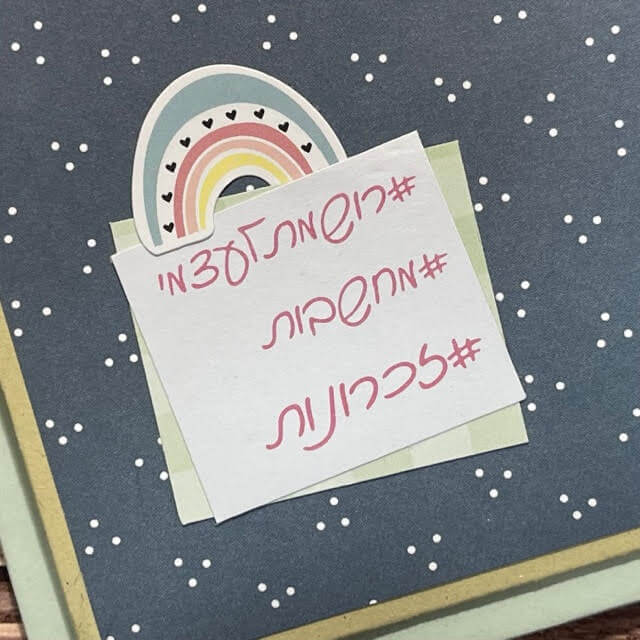 #רושמתלעצמי
#מחשבות
#זכרונות